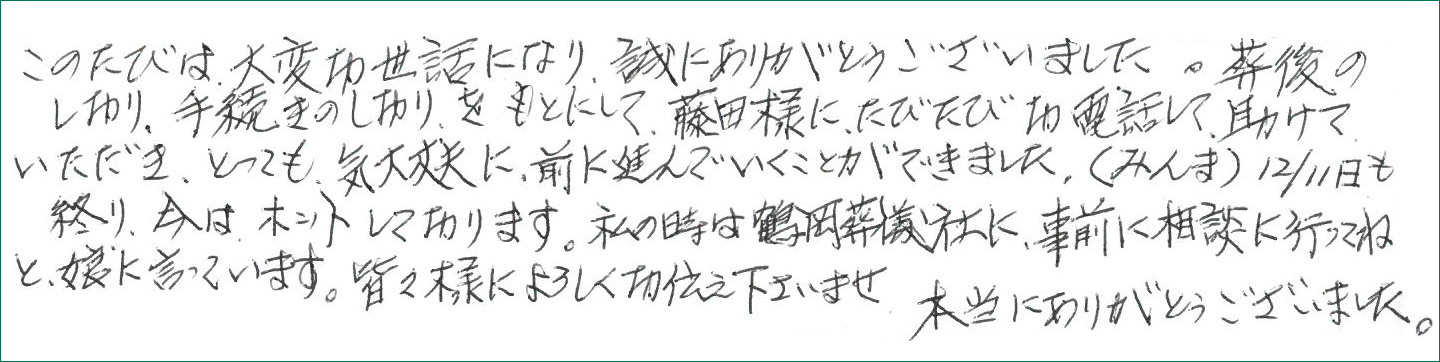 このたびは、大変お世話になり、誠にありがとうございました。葬後の
しおり、手続きのしおり、をもとにして、藤田様に、たびたびお電話して、助けて
いただき、とっても、気丈夫に、前に進んでいくことができました。(みんま) 12/11日も
終り、今は、ホットしております。私の時は鶴岡葬儀社に、事前に相談に行ってね
と、娘に言っています。皆々様によろしくお伝え下さいませ
本当にありがとうございました。